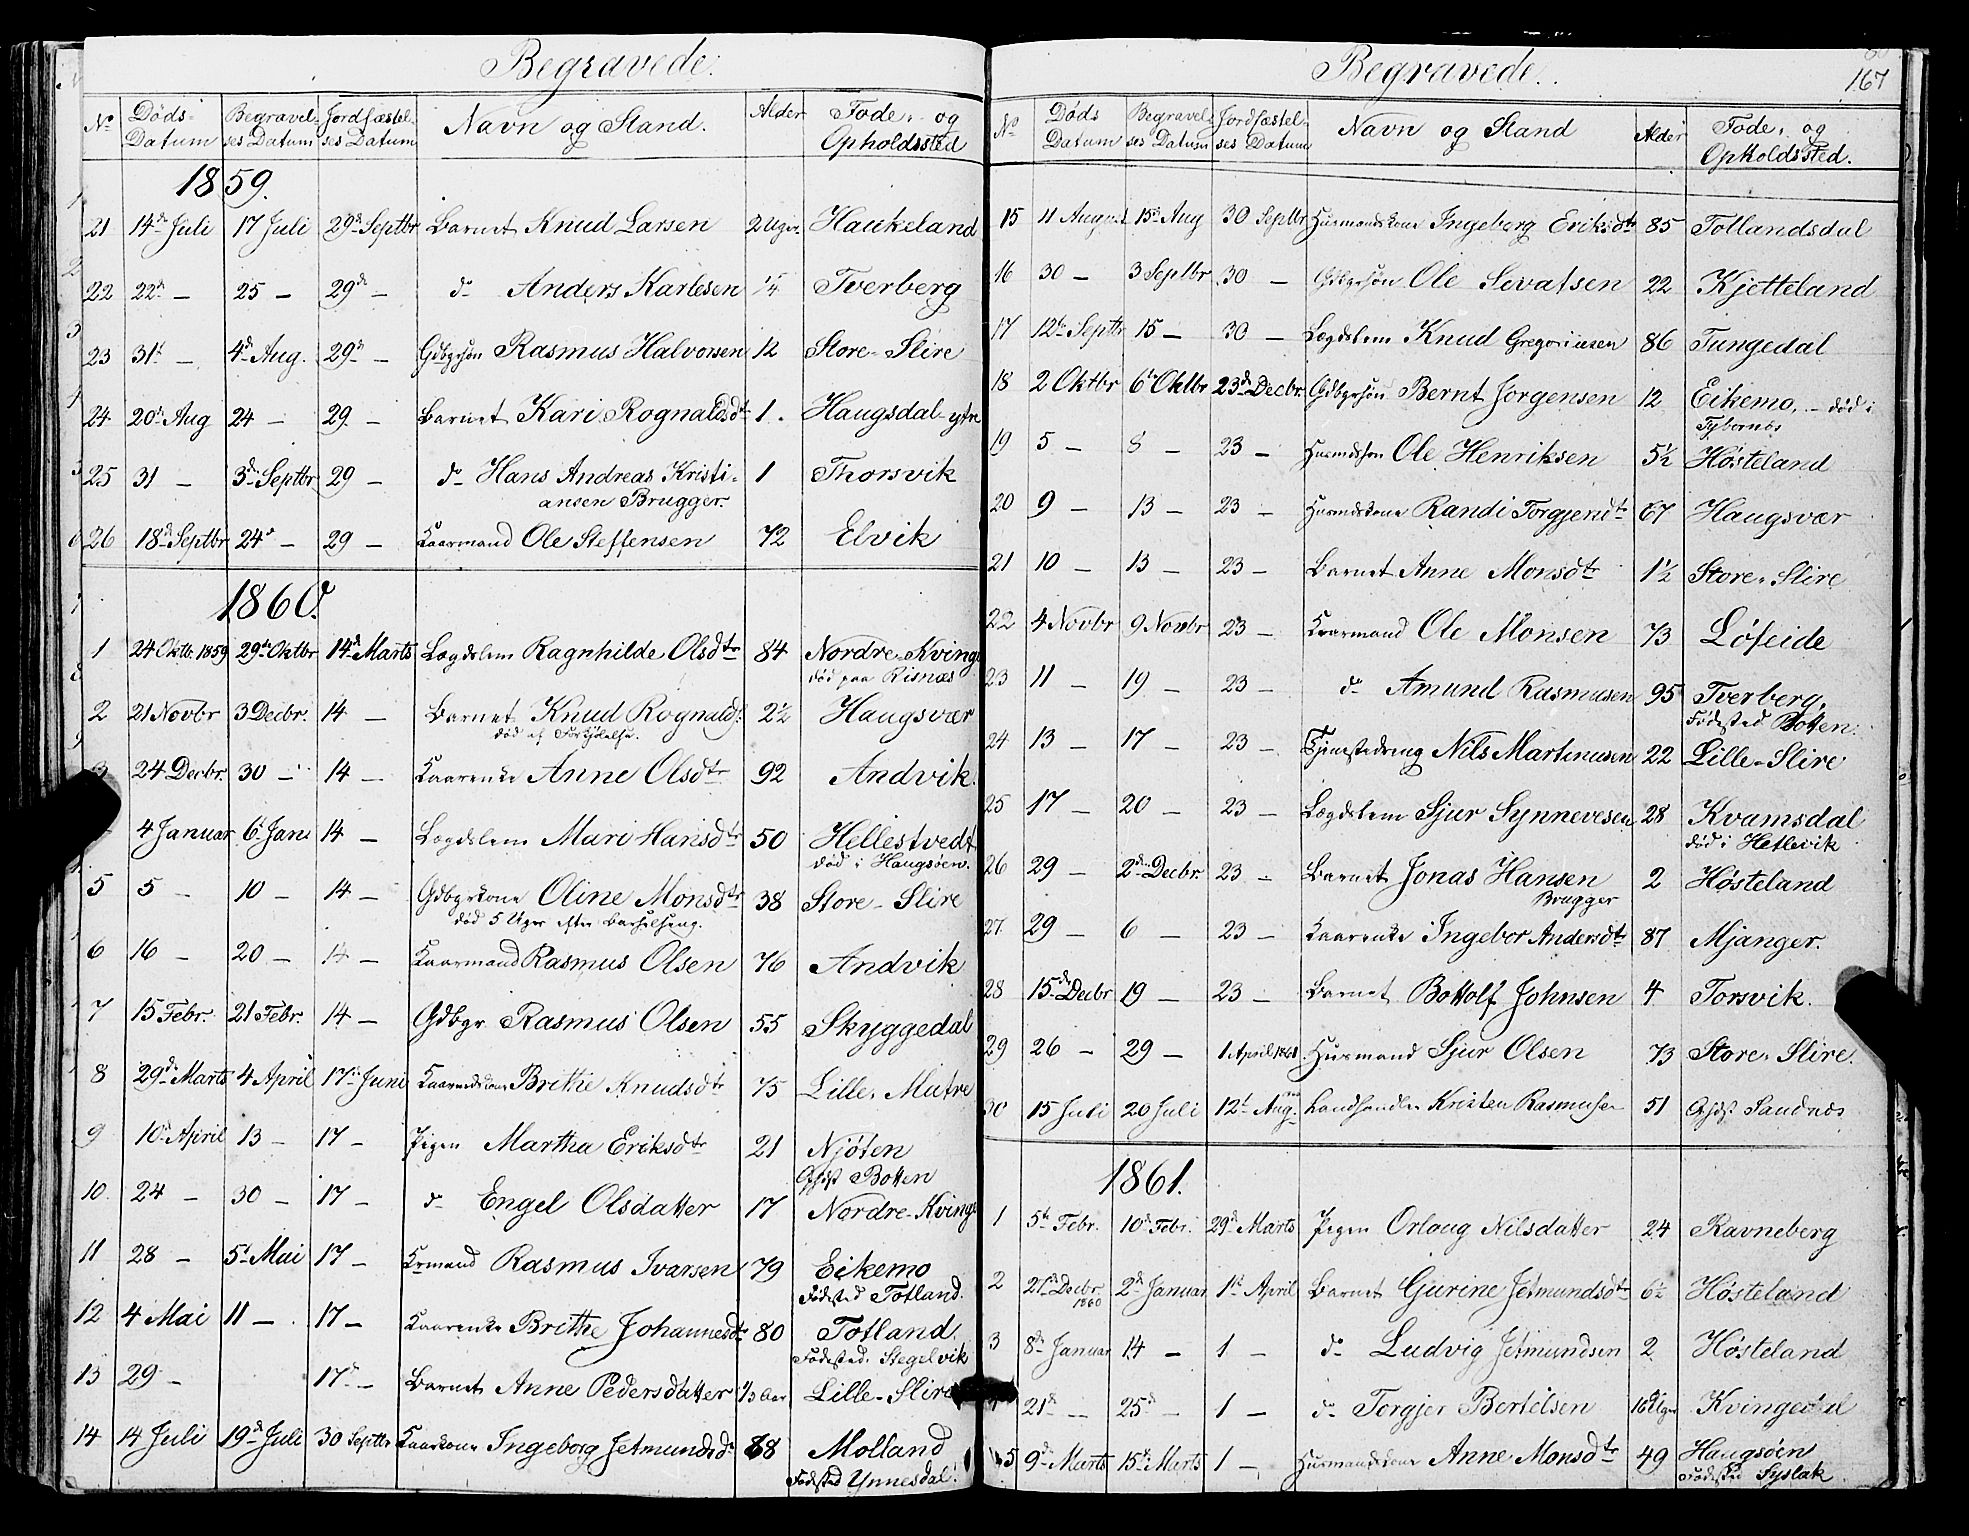 Begravede.
No Døds-Datum Begravelses Datum Jordfæstelses Datum Navn og Stand. Alder Føde- og Opholdssted
1859.
21 14de Juli 17 Juli 29de Septbr Barnet Knud Larsen 2 Uger. Haukeland
22 22de — 25 — 29de — do Anders Karlesen Tverberg
23 31te — 4de Aug. 29de — Gdbgrsøn Rasmus Halvorsen 12 Store-Slire
24 20de Aug 24 — 29 — Barnet Kari Rognaldsdtr 1. Haugsdal-ytre
25 31 — 3de Septbr 29 — do Hans Andreas Kristi-
ansen Brugger. 1 Thorsvik
26 18de Septbr 24de — 29 — Kaarmand Ole Steffensen 72 Elvik
1860.
1 24 Oktb. 1859 29de Oktbr 14de Marts Lægdslem Ragnhilde Olsdtr 84 Nordre-Kvinge
død paa Risnæs
2 21 Novbr 3 Decbr. 14 — Barnet Knud Rognalds. 2½ Haugsvær
død af Forkjølelse.
3 24 Decbr. 30 — 14 — Kaarenke Anne Olsdtr 92 Andvik.
4 Januar 6 Jan. 14 — Lægdslem Mari Hansdtr 50 Hellestvedt
død i Haugsøen.
5 5 — 10 — 14 — Gdbgrkone Oline Monsdtr 38 Store-Slire
død 5 Uger efter Barselseng.
6 16 — 20 — 14 — Kaarmand Rasmus Olsen 76 Andvik
7 15 Febr. 21 Febr. 14 — Gdbgr Rasmus Olsen 55 Skyggedal
8 29de Marts 4 April 17de Juni Kaarmdskone Brithe Knudsdtr 75 Lille-Matre
9 10de April 13 — 17 — Pigen Martha Eriksdtr 21 Njøten
Ophst Botten
10. 24 — 30 — 17 — do Engel Olsdatter 17 Nordre-Kvinge
11 28 — 5te Mai 17 — Krmand Rasmus Ivarsen 79 Eikemo
Fødested Totland.
12 4 Mai 11 — 17 — Kaarenke Brithe Johannesdtr 80 Totland.
Fødested. Stegelvik
13 29 — 17de — Barnet Anne Pedersdatter ⅓ Aar Lille-Slire
14 14 Juli 19de Juli 30 Septbr Kaarkone Ingeborg Jetmundsdtr 68 Molland
Fødested Ynnesdal.
Begravede.
167
No Døds Datum Begravelses Datum Jordfæstelses Datum Navn og Stand Alder Føde- og Opholdssted.
15 11 August 15de Aug 30 Septbr Husmandskone Ingeborg Eriksdtr 85 Totlandsdal
16 30 — 3 Septbr 30 — Gdbgrsøn Ole Sevatsen 22 Kjetteland
17 12te Septbr 15 — 30 — Lægdslem Knud Gregoriusen 86 Tungedal
18 2 Oktbr 6te Oktbr 23de Decbr. Gdbgrsøn Bernt Jorgensen 12 Eikemo, — død i
Tybornes
19 5 — 8 — 23 — Husmdssøn Ole Henriksen 5½ Høsteland
20 9 — 13 — 23 — Husmdskone Randi Torgjersdtr 67 Haugsvær
21 10 — 13 — 23 — Barnet Anne Monsdtr 1½ Store-Slire
22 4 Novbr 9 Novbr 23 — Kaarmand Ole Monsen 73 Løfeide
23 11 — 19 — 23 — do Amund Rasmusen 95 Tverberg,
Fødested Botten.
24 13 — 17 — 23 — Tjenestedreng Nils Martinusen 22 Lille-Slire
25 17 — 20 — 23 — Lægdslem Sjur Synnevesen 28 Kvamsdal
død i Hetlevik
26 29 — 2de Decbr. 23 — Barnet Jonas Hansen
Brugger 2 Høsteland
27. 29 — 6 — 23 — Kaarenke Ingebor Andersdtr 87 Mjanger.
28 15de Decbr 19 — 23 — Barnet Bottolf Johnsen 4 Torsvik.
29 26 — 29 — 1 April 1861. Husmand Sjur Olsen 73 Store-Slire.
30 15 Juli 20 Juli 12te Aug. Landhandler Kristen Rasmusen 51 Ophst Sandnes
1861.
1 5te Febr. 10de Febr. 29de Marts Pigen Orloug Nilsdatter 24 Ravneberg
2 27de Decbr. 1860 2de Januar 1ste April Barnet Gurine Jetmundsdtr 6½ Høsteland
3 8de Januar 14 — 1 — do Ludvig Jetmundsen 2 Høsteland
21de — 25de — 1 — do Torgjer Bertelsen 16 Uger Kvingedal
5 9de Marts 15de Marts 1 — Husmandskone Anne Monsdtr 49 Haugsøen
Fødested Syslak